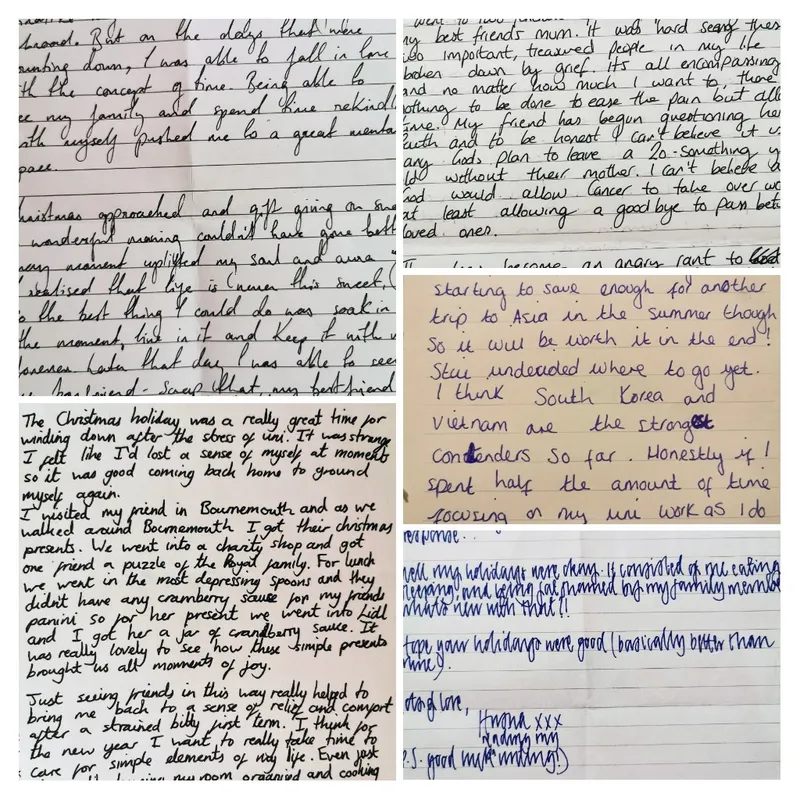 broad. But on the days that were
unting down, I was able to fall in love
th the concept of time. Being able to
e my family and spend time rekindl
ith myself pushed me to a great menta
pace.
hristmas approached and gift giving on
wonderful morning couldn't have gone bett
moment uplifted my soul and aura
realised that life is (never this sweet,
o the best thing I could do was soak in
the moment, live in it and keep it with
Later that day I was able to see
boyfriend - Scrap that, my bestfriend
The Christmas holiday was a really great time for
winding down after the stress of uni. It was strange
I felt like I'd lost a sense of myself at moments
so it was good coming back home to ground
myself again.
I visited my friend in Bournemouth and as we
walked around Bournemouth I got their christmas
presents. We went into a charity shop and got
one friend a puzzle of the Royal family. For lunch
we went in the most depressing spoons and they
didn't have any cramberry sause for my friends
panini so for her present we went into Lidl
and I got her a jar of crandberry sauce. It
was really lovely to see how these simple presents
brought us all moments of joy.
Just seeing friends in this way really helped to
bring me back to a sense of relief and comfort
after a strained bitty first term. I think for
the new year I want to really take time to
care for simple elements of my life. Even just
my room organised and cooking
went to two
my best friends mum. It was hard seeing thes
wo important, treasured people in my life
broken down by grief. It's all encompassing
and no matter how much I want to, there
othing to be done to ease the pain but all
ime. My friend has begun questioning her
aith and to be honest I can't believe it
any Gods plan to leave a 20-something y
ld without their mother. I can't believe a
God would allow Cancer to take over
at least allowing a goodbye to pass betw
loved ones.
become an angry rant to
starting to save enough for another
trip to Asia in the summer though
so it will be worth it in the end!
Still undecided where to go yet.
I think South Korea and
Vietnam are the strongest
contenders so far. Honestly if I
spent half the amount of time
focusing on my uni work as I do
response...
Well my holidays were okay. It consisted of me eating
leeping, and being fat shamed by my family membe
whats new with that!!
Hope your holidays were good (basically better than
mine).
love,
xxx
P.S. good luck reading my
writing!)